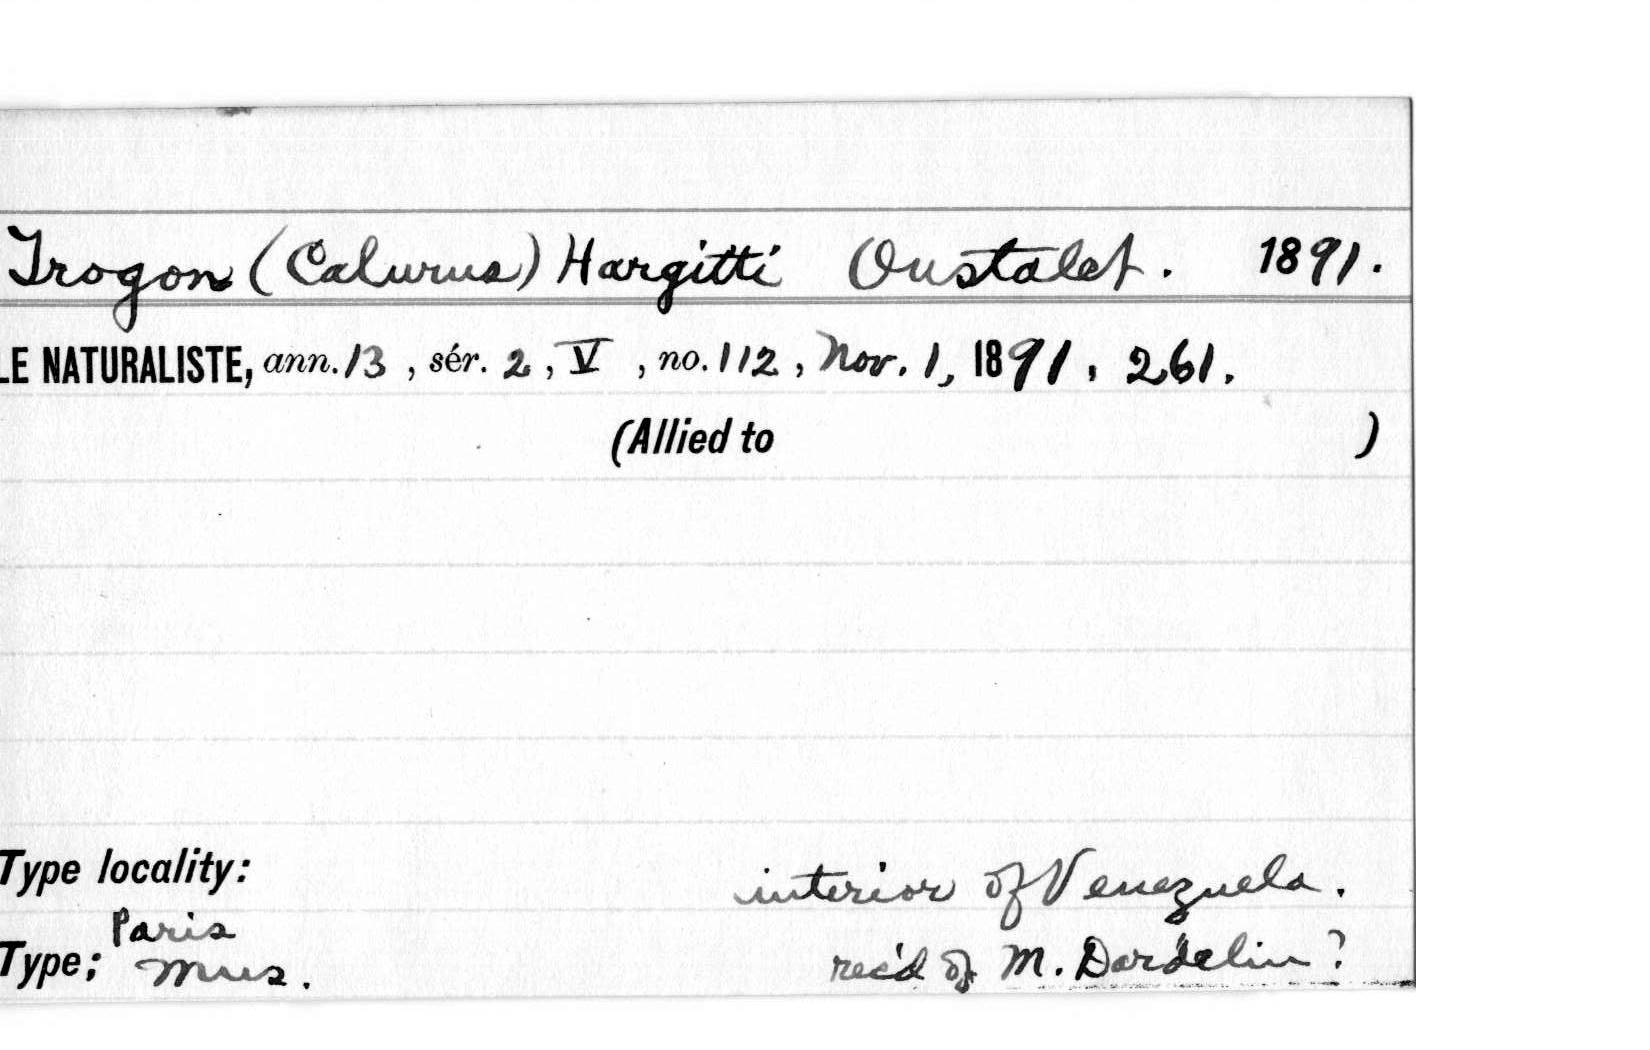 Trogon (Calurus) Hargitti Oustalet. 1891.
LE NATURALISTE, ann. 13, sér. 2, V, no. 112, Nov. 1, 1891, 261.
(Allied to )
Type locality: interior of Venezuela.
Paris
Type; Mus. rec'd of M. Dardelin?